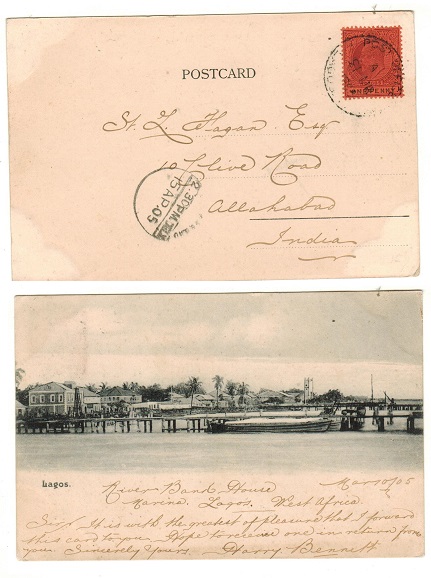 POSTCARD
ONE PENNY
St. L. Hagan Esq
10 Clive Road
Allahabad
India
2.30 PM
15 AP.05
Lagos.
River Bank House
Mar 10/05
Marina, Lagos, West Africa.
Sir, It is with the greatest of pleasure that I forward
this card to you. Hope to receive one in return from
you. Sincerely Yours. Harry Bennett